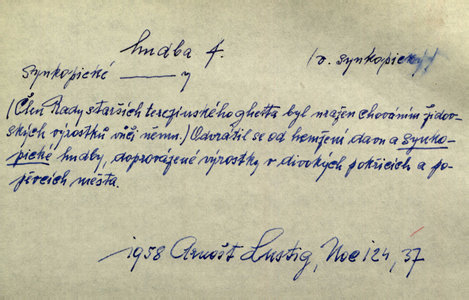 hudba f. (v. synkopický)
synkopické —— y
(Člen Rady starších terezínského ghetta byl uražen chováním židov-
ských výrostků vůči němu.) Odvrátil se od hemžení davu a synko-
pické hudby, doprovázené výrostky v divokých pokřicích a po-
pěvcích města.
1958 Arnošt Lustig, Noc 124, 37